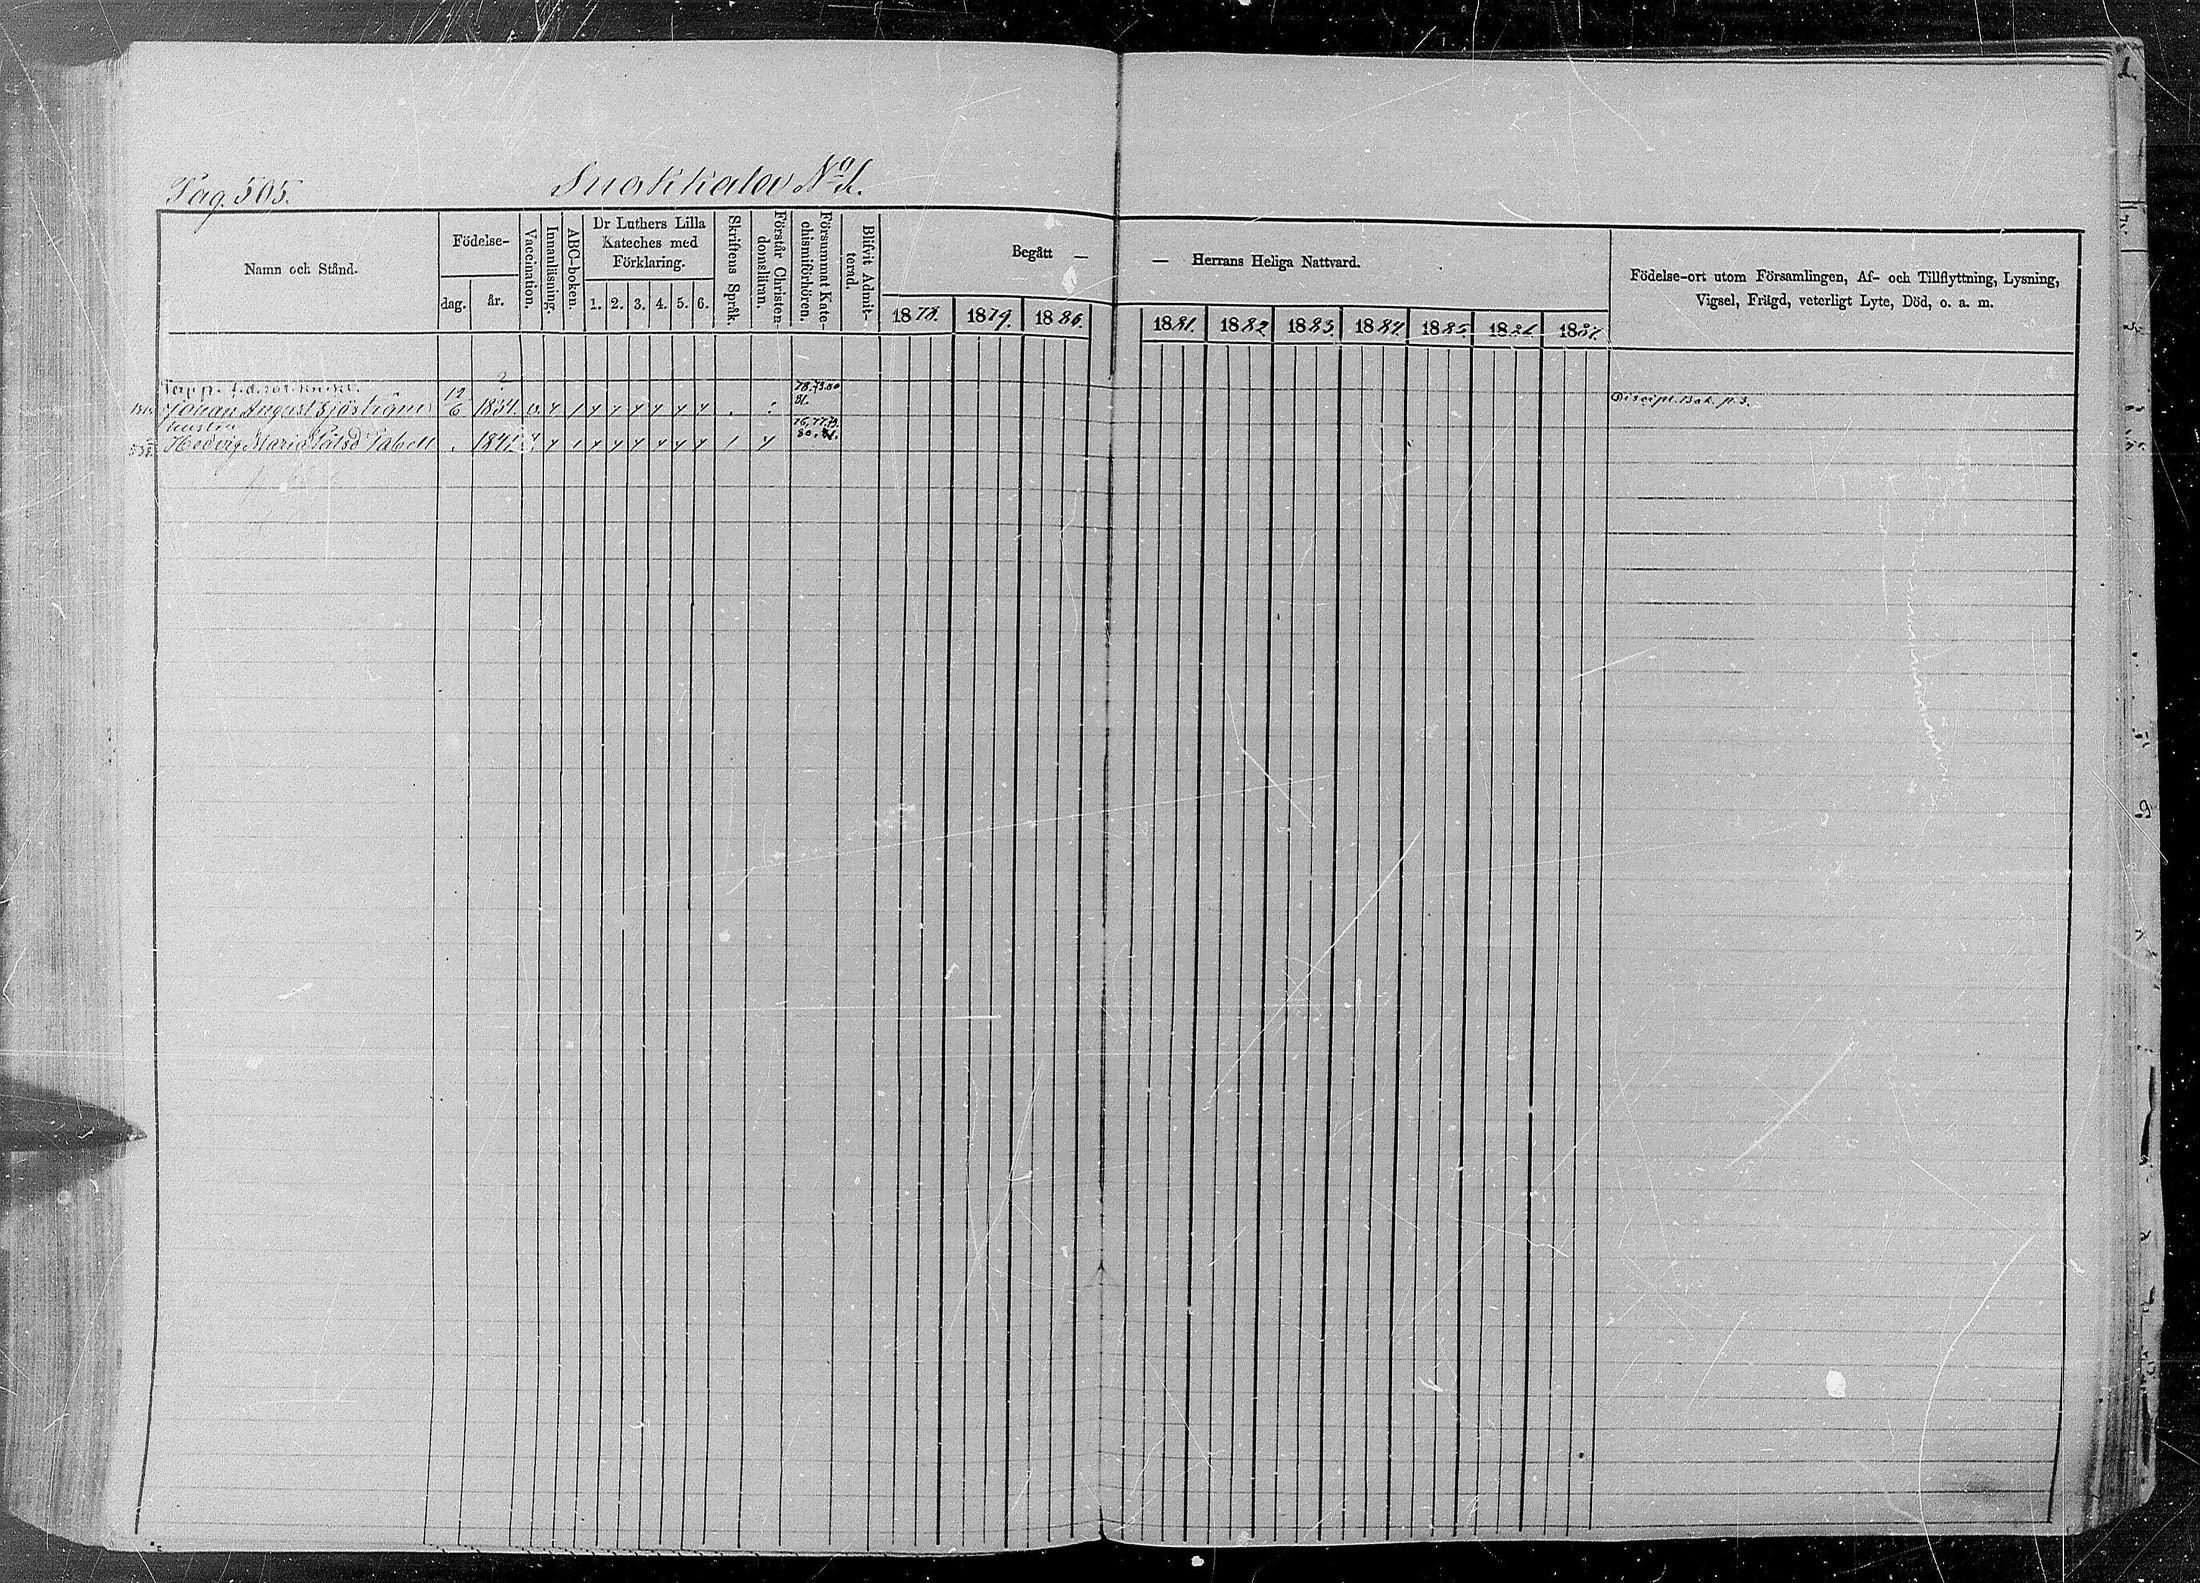 Pag. 505.
Suokkala No 1.
Namn och Stånd.
Födelse-
dag.
år.
Vaccination.
Innanläsning.
ABC-boken.
Dr Luthers Lilla
Kateches med
Förklaring.
1. 2. 3. 4. 5. 6.
Skriftens Språk.
Förstår Christen-
domsläran.
Försummat Kate-
chismiförhören.
Blifvit Admit-
terad.
Begått —
1878. 1879. 1880.
— Herrans Heliga Nattvard.
1881. 1882. 1883. 1884. 1885. 1886. 1887.
Födelse-ort utom Församlingen, Af- och Tillflyttning, Lysning,
Vigsel, Frägd, veterligt Lyte, Död, o. a. m.
f. d. rot. knekt. 78. 79. 80
Johan August Sjöström 12/6 1834. 81. Discipl. Bok. p. 3.
hustru 76, 77, 79.
Hedvig Maria 1841. 80. 81.